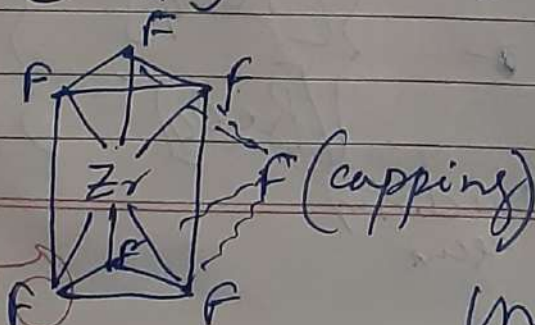 F
F F
Zr F (capping)
F
F F